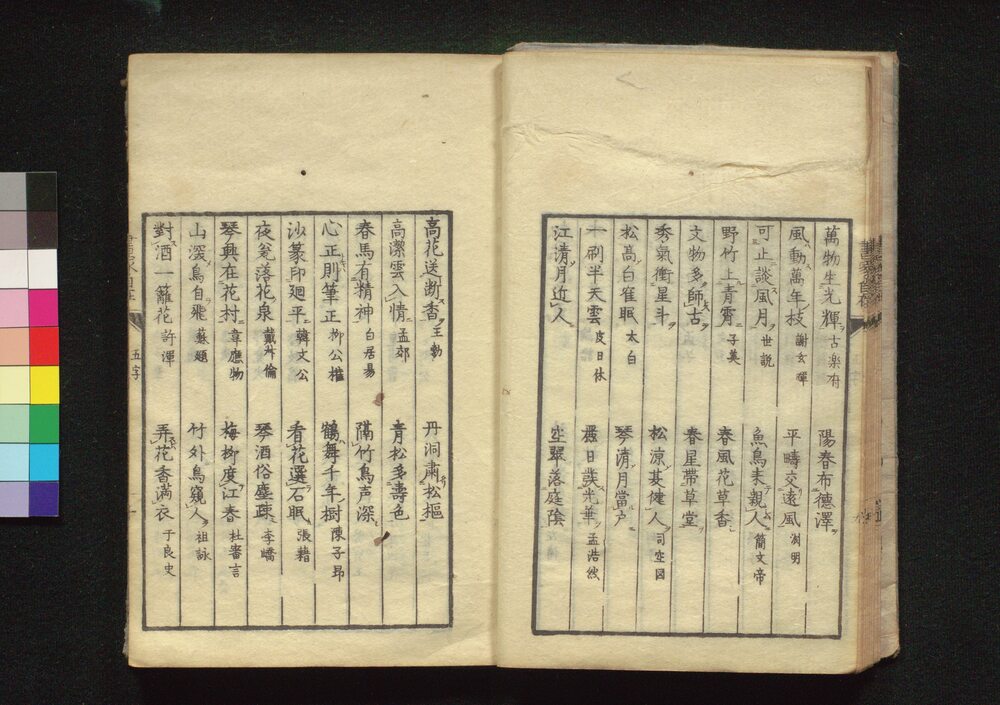 萬物生光輝 古楽府
陽春布德澤
風動萬年枝 謝玄暉
平疇交遠風 渕明
可止談風月 世説
魚鳥未親人 簡文帝
野竹上青霄 子美
春風花草香
文物多師古
春星帯草堂
秀氣衝星斗
松凉夏健人 司空図
松高白隺眠 太白
琴清月當户
一刷半天雲 皮日休
遲日誤光華 孟浩然
江清月近人
空翠落庭陰
高花送断香 王勃
丹洞肅松樞
高潔雲入情 孟郊
青松多壽色
春馬有精神 白居易
隔竹鳥声深
心正則筆正 栁公權
鶴舞千年樹 陳子昂
沙篆印廻平 韓文公
看花選石眠 張藉
夜瓮落花泉 戴叔倫
琴酒俗塵疎 李嶠
琴興在花村 韋應物
梅栁度江春 杜審言
山深鳥自飛 蘇頲
竹外鳥窺人 祖詠
對酒一籬花 許渾
弄花香滿衣 于良史
五字